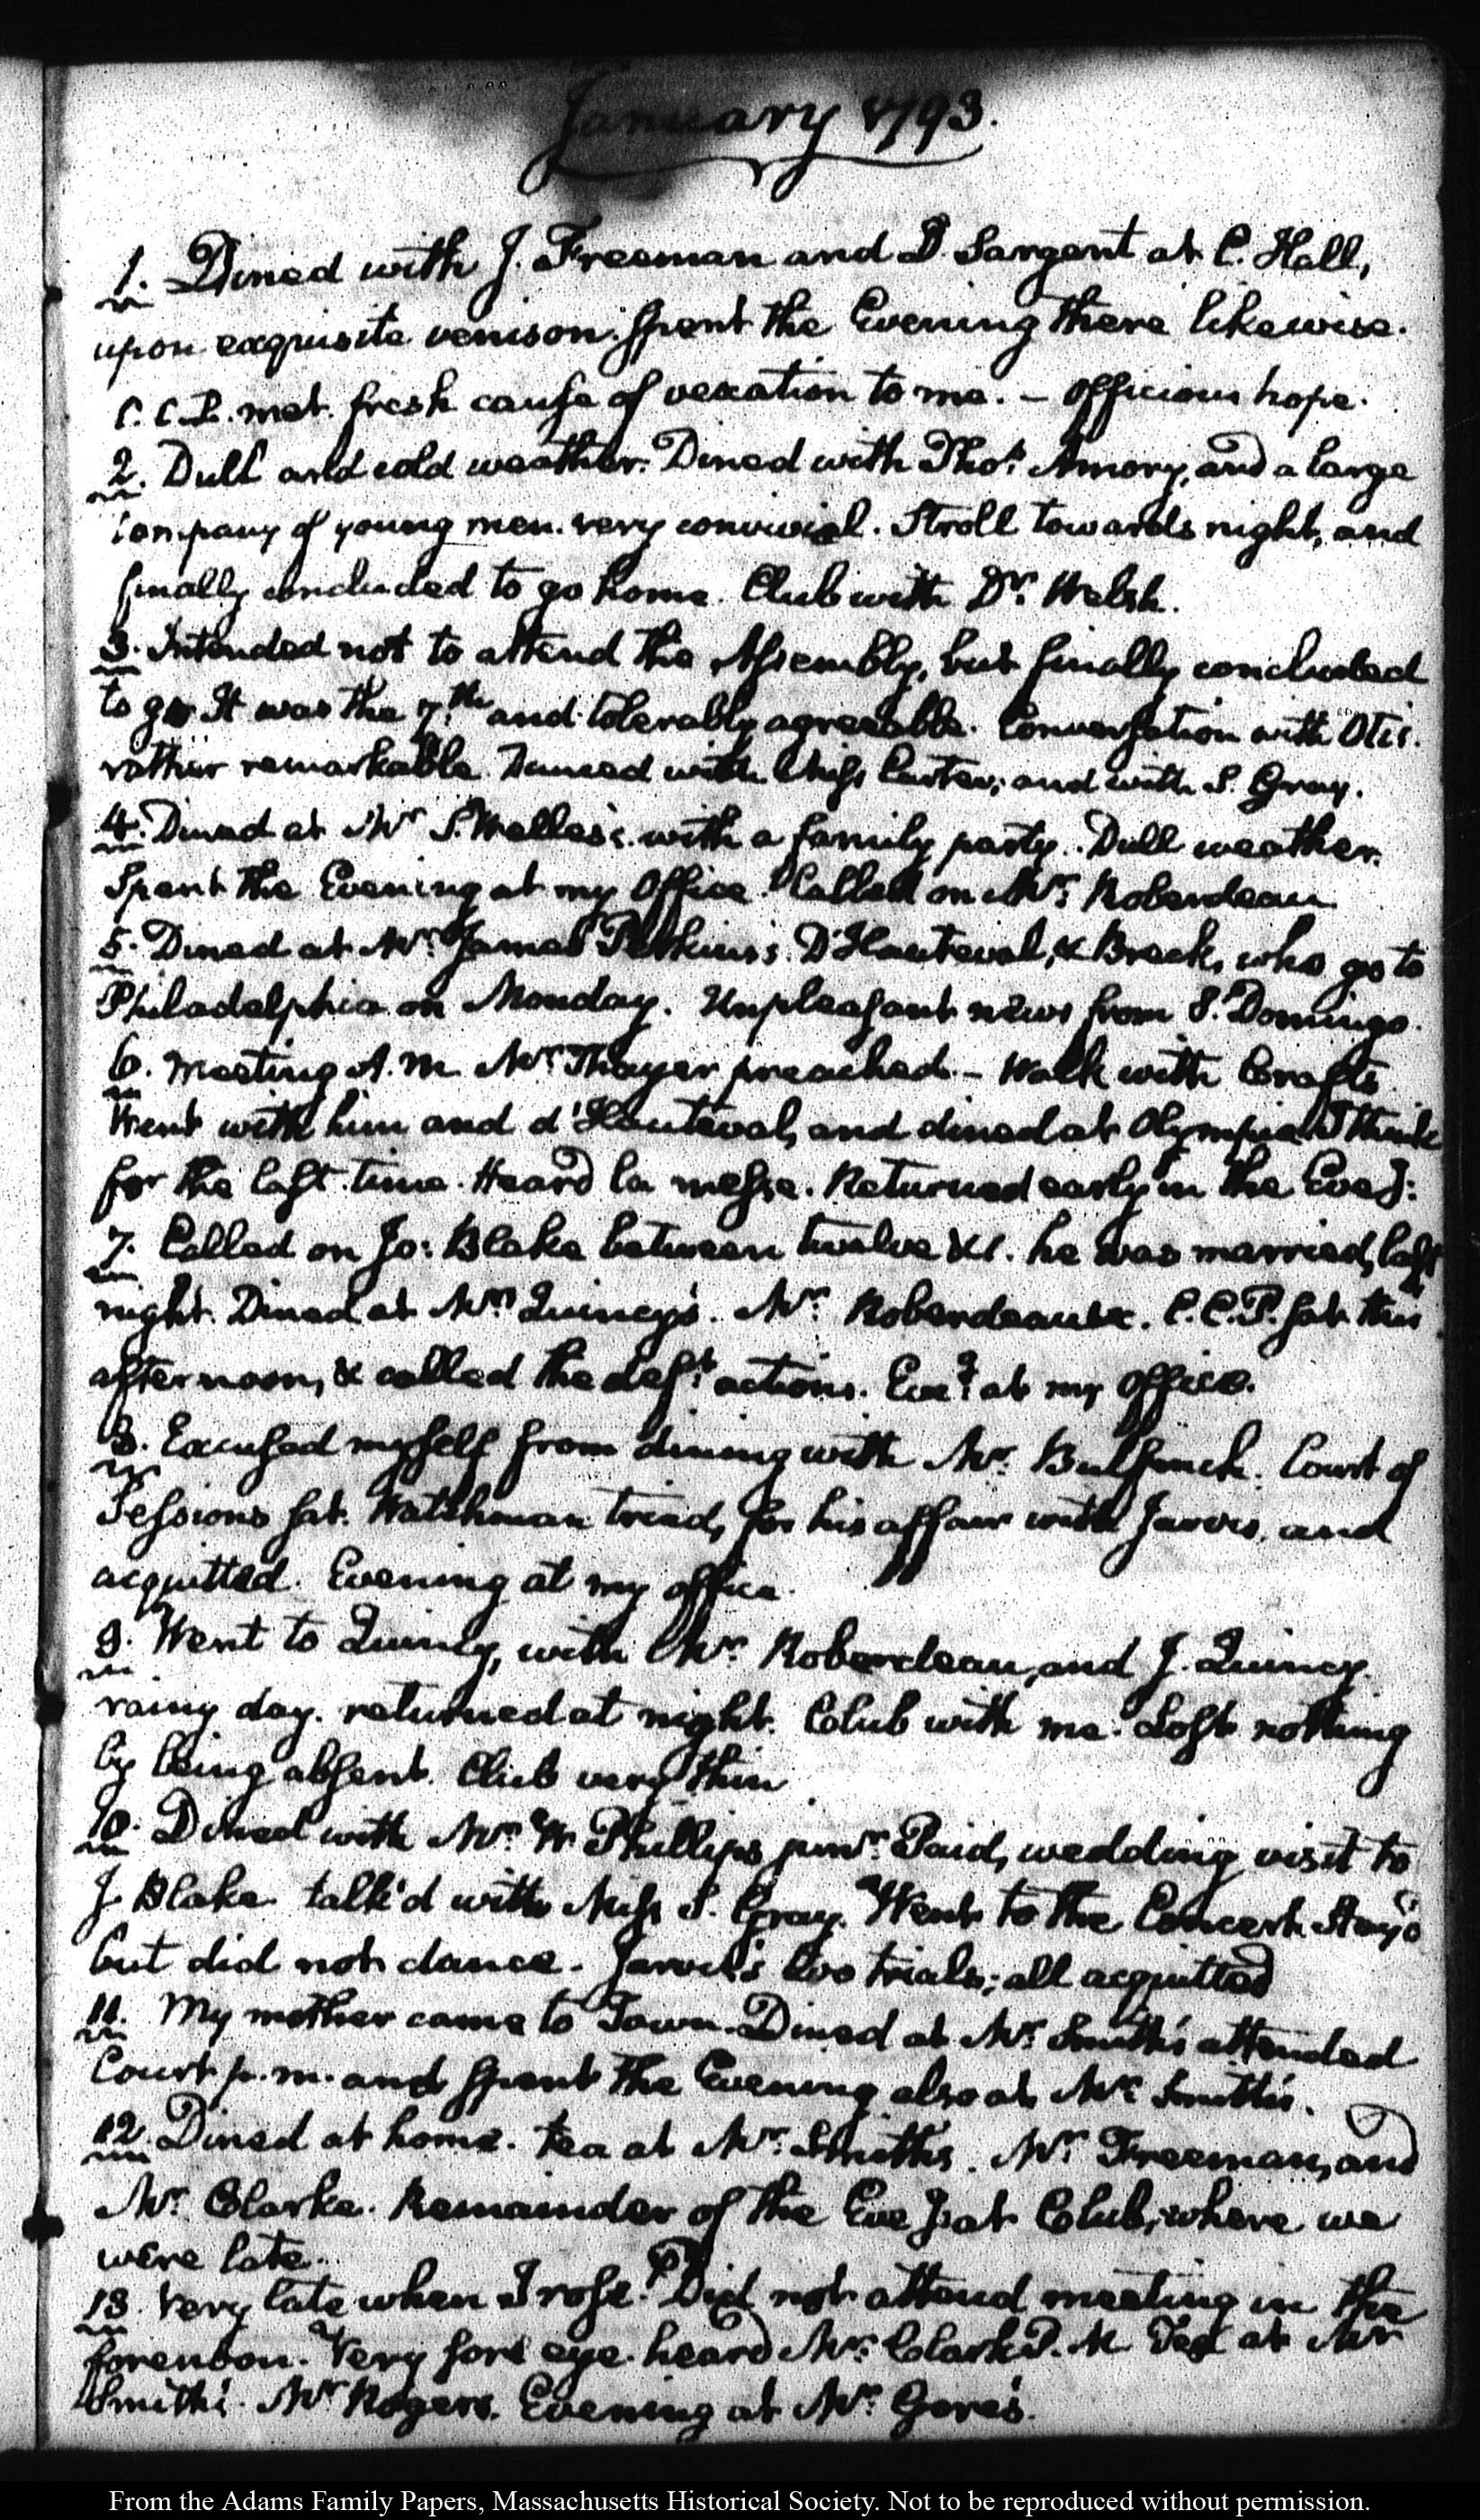 January 1793.
1. Dined with J. Freeman and D. Sargent at C. Hall,
upon exquisite venison. Spent the Evening there likewise.
C. C. P. met. fresh cause of vexation to me. – officious hope.
2. Dull and cold weather. Dined with Thos. Amory, and a large
company of young men. very convivial. Stroll towards night, and
finally concluded to go home. Club with Dr. Welsh.
3. Intended not to attend the Assembly, but finally concluded
to go. It was the 7.th and tolerably agreeable. Conversation with Otis.
rather remarkable. Danced with Miss Carter, and with S. Gray.
4. Dined at Mr. S. Welles's. with a family party. Dull weather.
Spent the Evening at my Office. Called on Mr. Roberdeau
5. Dined at Mr. James Perkins's. D'Hauteval, & Breck, who go to
Philadelphia on Monday. Unpleasant news from S. Domingo.
6. Meeting A. M. Mr. Thayer preached. – Walk with Crafts
Went with him and d'Hauteval, and dined at Olympia I think
for the last time. Heard la messe. Returned early in the Eveg:
7. Called on Jo: Blake between twelve & 1. he was married, last
night. Dined at Mrs. Quincy's. Mr. Roberdeau &c. C. C. P. sat this
afternoon, & called the actions. Eveg. at my office.
8. Excused myself from dining with Mr. Bulfinch. Court of
Sessions sat. Watchman tried, for his affair with Jarvis, and
acquitted. Evening at my office.
9. Went to Quincy, with Mr. Roberdeau, and J. Quincy
rainy day. returned at night. Club with me. Lost nothing
by being absent. Club very thin.
10. Dined with Mr. W. Phillips junr. Paid, wedding visit to
J. Blake. talk'd with Miss S. Gray. Went to the Concert.
but did not dance. Jarvis's two trials; all acquitted
11. My mother came to Town. Dined at Mr. Smith's attended
Court p. m. and spent the Evening also at Mr. Smith's.
12. Dined at home. tea at Mr. Smith's. Mr. Freeman, and
Mr. Clarke. Remainder of the Eveg at Club, where we
were late.
13. Very late when I rose. Did not attend meeting in the
forenoon. Very sore eye. heard Mr. Clark P. M. Tea at Mr
Smith's. Mr. Rogers. Evening at Mr. Gore's.
From the Adams Family Papers, Massachusetts Historical Society. Not to be reproduced without permission.